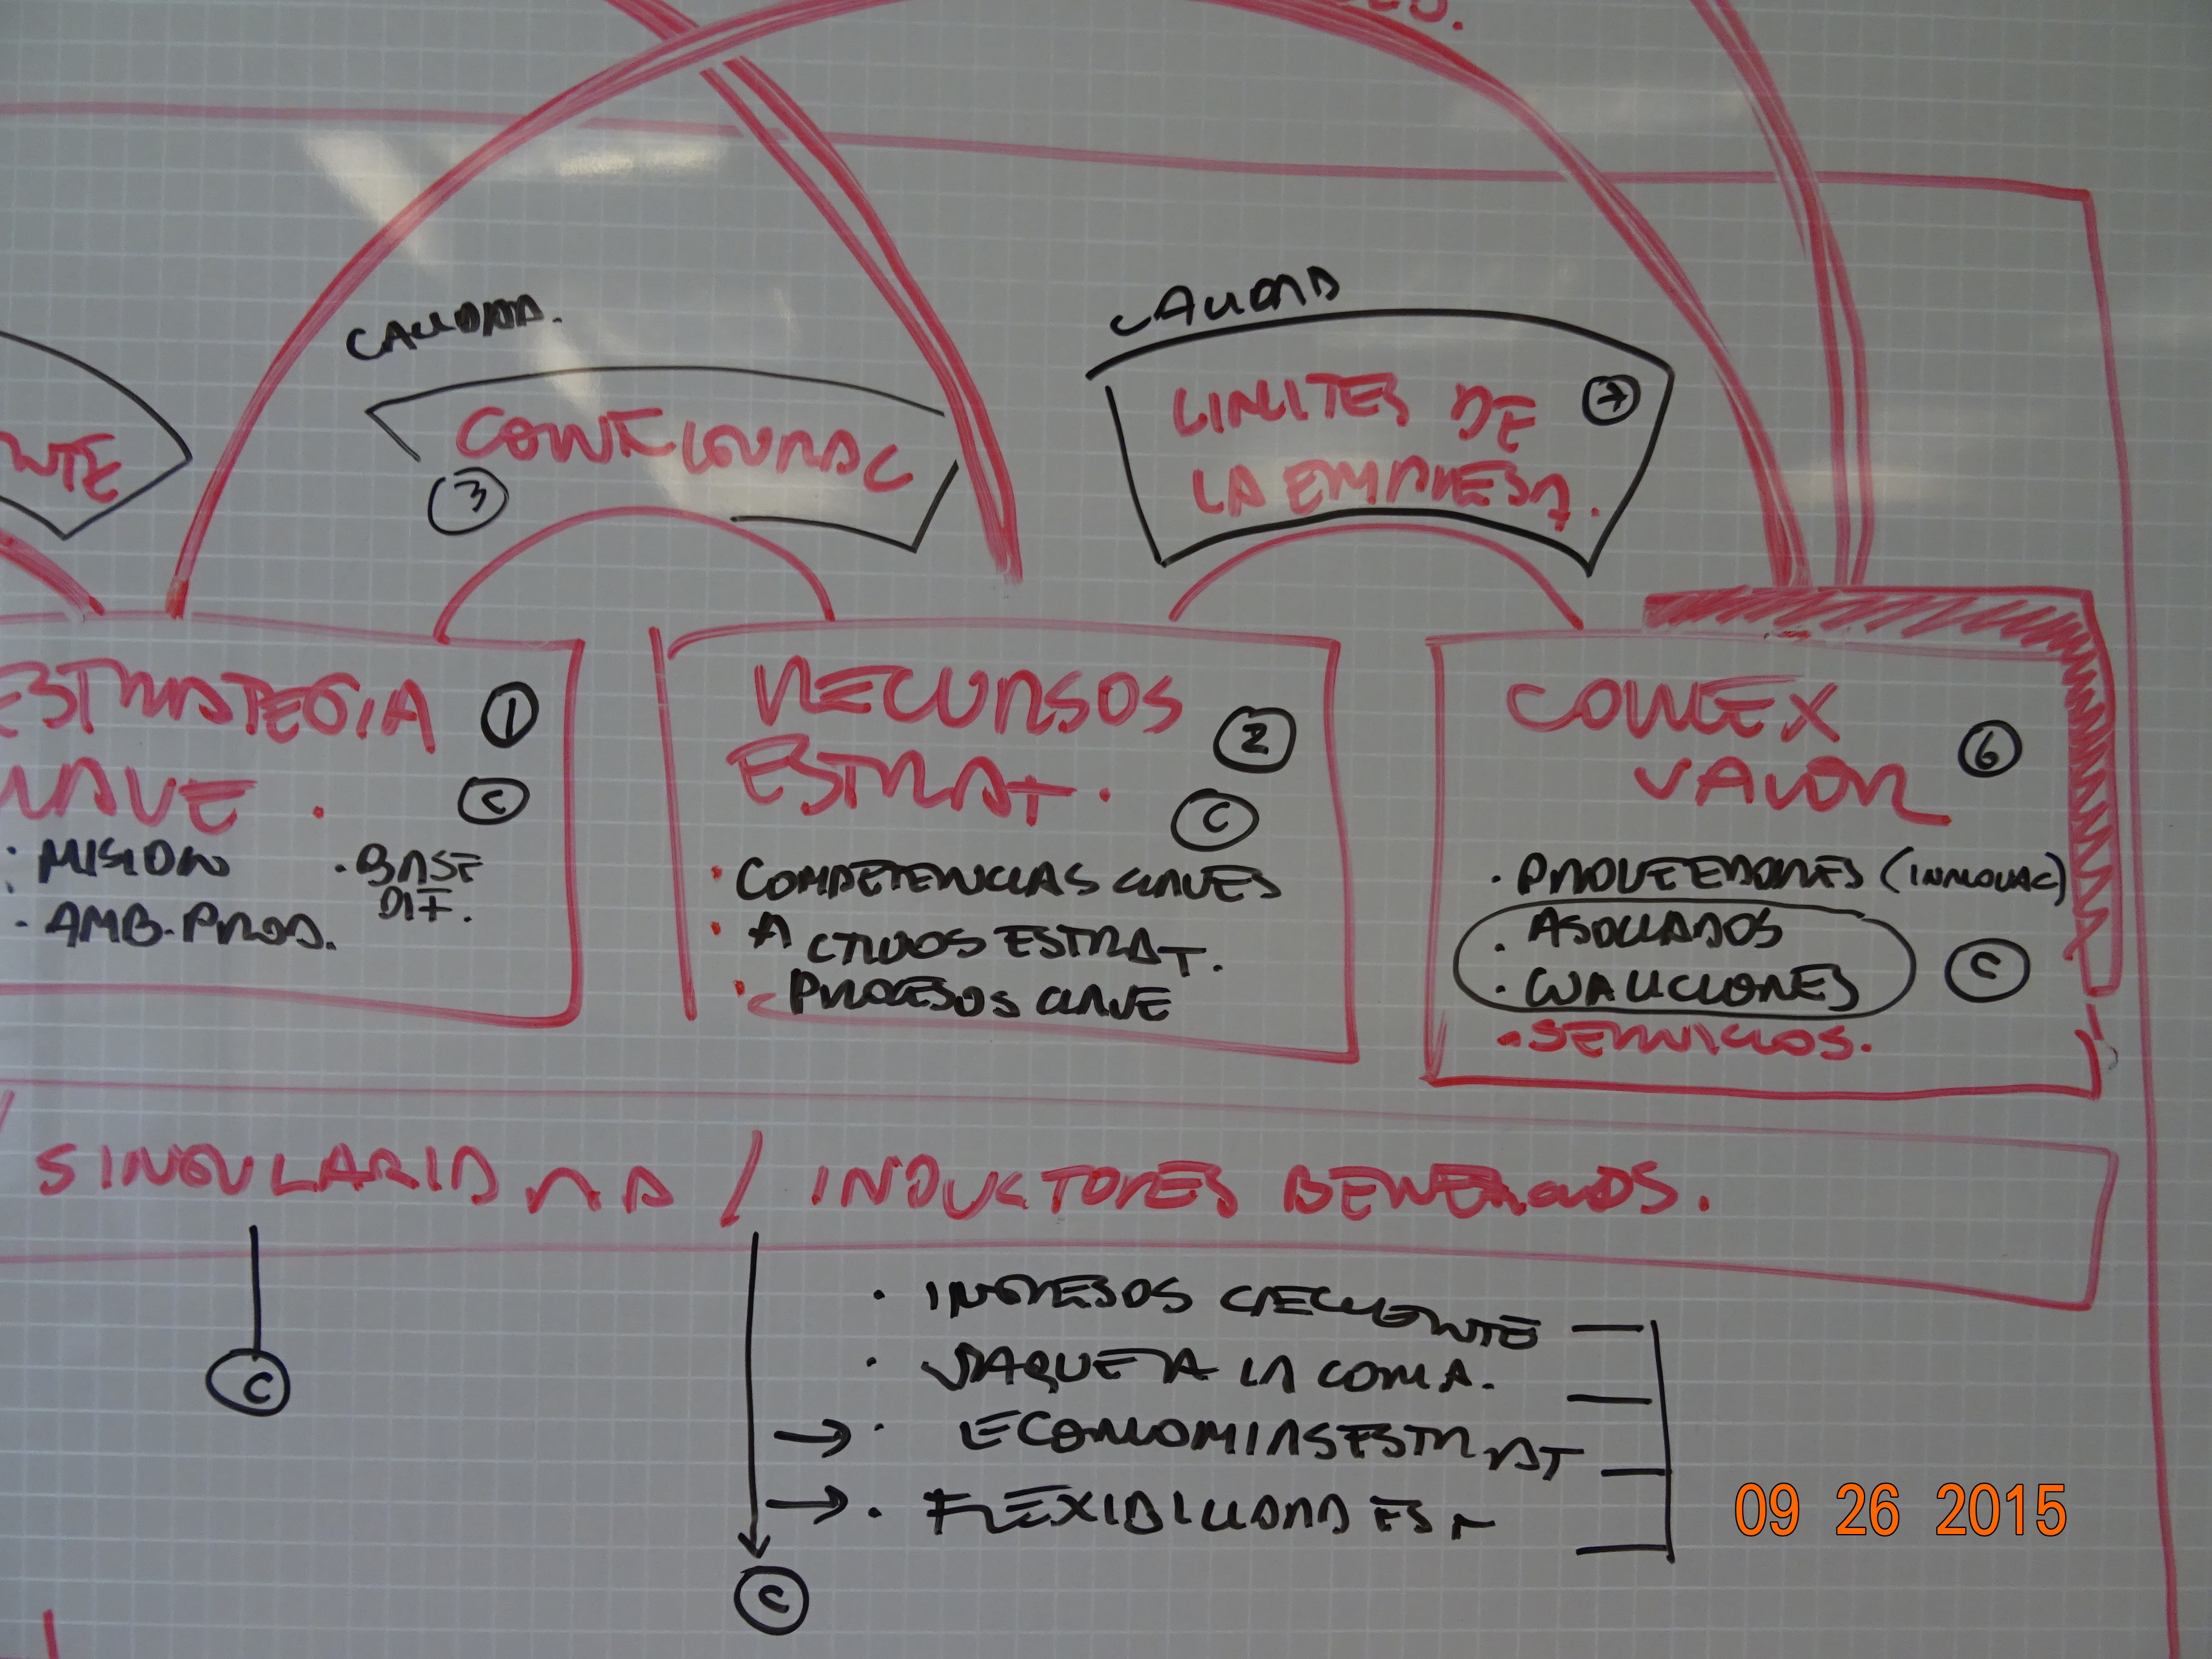 CALIDAD.
CALIDAD
NTE
CONFIGURAC
3
LIMITES DE
LA EMPRESA.
ESTRATEGIA 1
LAVE. C
• MISION • BASE
DIF.
• AMB. PROD.
RECURSOS 2
ESTRAT. C
• COMPETENCIAS CLAVES
• ACTIVOS ESTRAT.
• PROCESOS CLAVE
CONEX
VALOR 6
• PROVEEDORES (INNOVAC)
• ASOCIADOS
• COALICIONES C
• SERVICIOS.
SINGULARIDAD / INDUCTORES BENEFICIOS.
C
• INGRESOS CRECIENTE
• JAQUE A LA COMA.
→ • ECONOMIAS ESTRAT
→ • FLEXIBILIDAD ES
C
09 26 2015